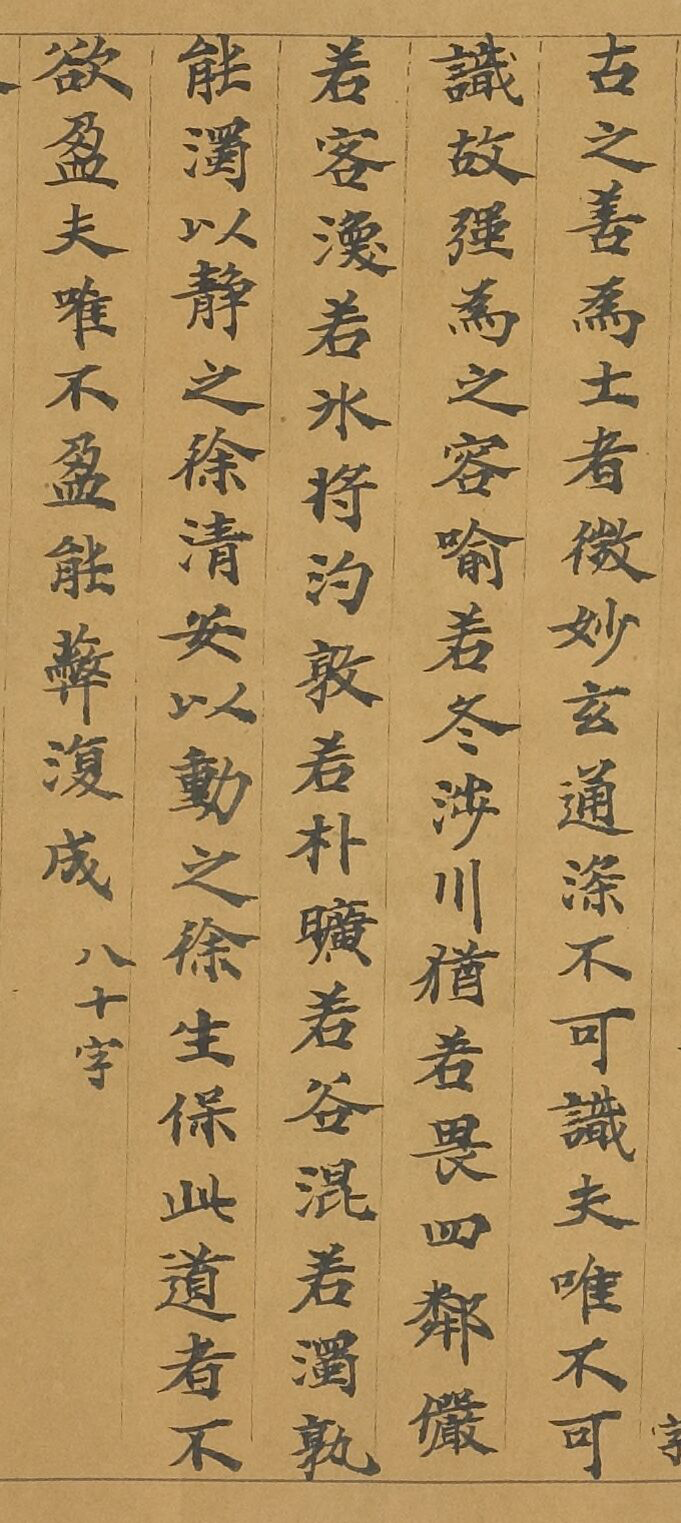 字
古之善為士者微妙玄通深不可識夫唯不可
識故强為之容喻若冬涉川猶若畏四鄰儼
若客渙若氷將汋敦若朴曠若谷混若濁孰
能濁以静之徐清安以動之徐生保此道者不
欲盈夫唯不盈能弊復成 八十字